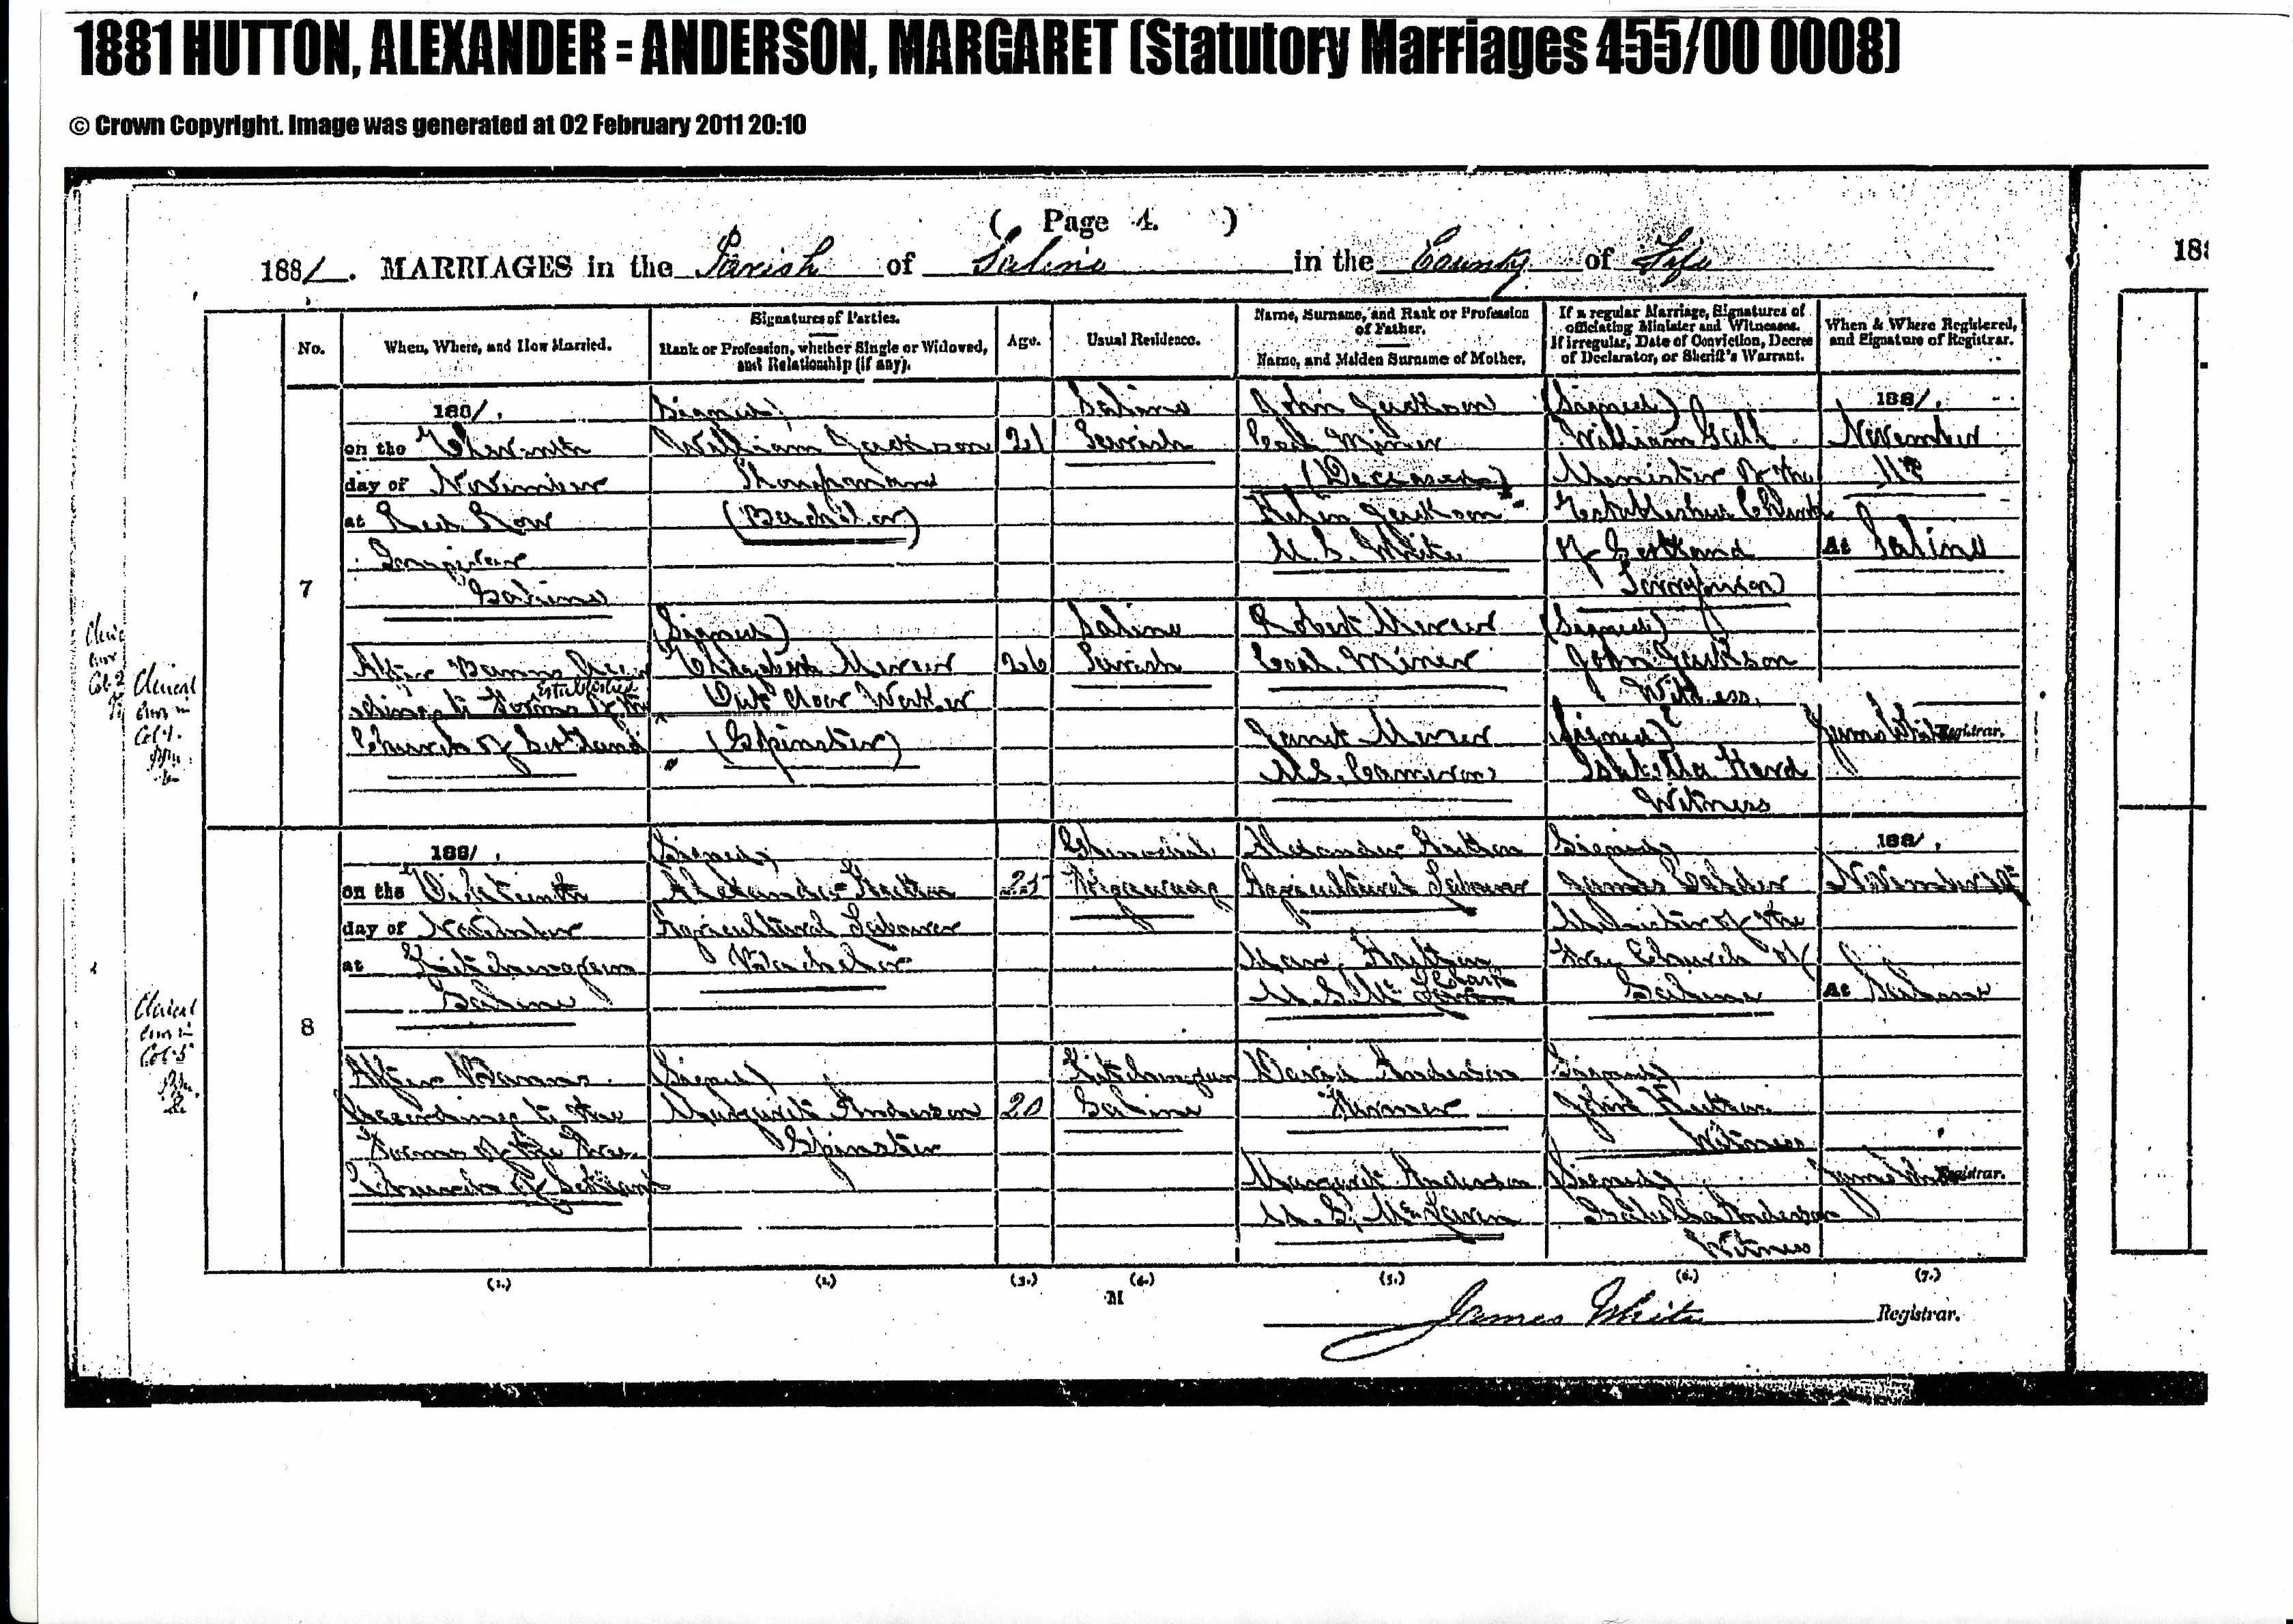 1881 HUTTON, ALEXANDER = ANDERSON, MARGARET (Statutory Marriages 455/00 0008)
© Crown Copyright. Image was generated at 02 February 2011 20:10
( Page 4. )
1881. MARRIAGES in the Parish of Saline in the County of Fife
188
No.
When, Where, and How Married.
Signatures of Parties.
Rank or Profession, whether Single or Widowed,
and Relationship (if any).
Age.
Usual Residence.
Name, Surname, and Rank or Profession
of Father.
Name, and Maiden Surname of Mother.
If a regular Marriage, Signatures of
officiating Minister and Witnesses.
If irregular, Date of Conviction, Decree
of Declarator, or Sheriff's Warrant.
When & Where Registered,
and Signature of Registrar.
7
1881.
on the Eleventh
day of November
at Red Row
Saline
After Banns Accor
ding to Forms of the
Established
Church of Scotland
(Signed)
William Jackson
(Bachelor)
(Signed)
Elizabeth Mercer
Out door Worker
(Spinster)
21
26
Saline
Parish
Saline
Parish
John Jackson
Coal Miner
(Deceased)
Helen Jackson
M.S. White
Robert Mercer
Coal Miner
Janet Mercer
M.S. Cameron
(Signed)
William
Minister of the
Established Church
of Scotland
(Signed)
John Jackson
Witness.
(Signed)
Isabella Herd
Witness
1881.
November
At Saline
James White Registrar.
Clerical
Error in
Col. 1.
8
1881.
on the
day of November
at
Saline
After Banns
According to the
Forms of the Free
Church of Scotland
(Signed)
Alexander Hutton
Agricultural Labourer
Bachelor
(Signed)
Margaret Anderson
Spinster
25
20
Saline
Alexander Hutton
Agricultural Labourer
Hutton
M.S. Mc
David Anderson
Farmer
Margaret Anderson
M.S. McLaren
Signed
James
Minister of the
Free Church of
Saline
Signed
John Hutton
Witness
(Signed)
Isabella Anderson
Witness
1881.
November
At Saline
James White Registrar.
Clerical
Error in
Col. 5
(1.) (2.) (3.) (4.) (5.) (6.) (7.)
M
James White Registrar.